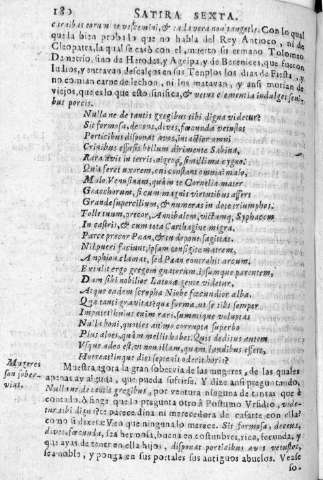 180 SATIRA SEXTA.
Con lo qual
queda bien probado que no habla del Rey Antioco, ni de
Cleopatra, la qual se casò con el, muerto su ermano Tolomeo
sino de Herodas, y Agripa, y de Berenices, que fueron
Iudios, y entravan descalços en sus Templos los dias de Fiesta, y
no comian carne de lechon, ni los matavan, y ansi morian de
viejos, que es lo que esto sinifica, & vetus clementia indulget seni-
bus porcis.
Nulla ne de tantis gregibus tibi digna videtur?
Sit formosa, decens, dives, fæcunda vetustos
Porticibus disponat avos, intactior omni
Crinibus effusis bellum dirimente Sabina,
Rara avis in terris, nigroq; simillima cygno.
Quis feret uxorem, cui constant omnia? malo,
Malo Venusinam, quàm te Cornelia mater
Gracchorum, si cum magnis virtutibus affers
Grande supercilium, & numeras in dote triumphos.
Tolle tuum, precor, Annibalem, victumq; Syphacem
In castris, & cum tota Carthagine migra.
Parce precor Pæan, & tu depone sagittas.
Nil pueri faciunt, ipsam configite matrem,
Amphion clamat, sed Pæan contrahit arcum,
Extulit ergo gregem natorum, ipsumque parentem,
Dum sibi nobilior Latonæ gente videtur,
Atque eadem scropha Niobe fæcundior alba.
Quæ tanti gravitas? quæ forma, ut se tibi semper
Imputet? huius enim rari, summique voluptas
Nulla boni, quoties animo corrupta superbo
Plus aloes, quàm mellis habet. Quis deditus autem
Usque adeo est, ut non illam, quam laudibus effert,
Horreat? inque diem septenis oderit horis?
Mugeres
son sober-
vias.
Muestra agora la gran sobervia de las mugeres, de las quales
apenas ay alguna, que pueda sufrirse. Y dize ansi preguntando,
Nulla ne de tantis gregibus, por ventura ninguna de tantas que è
contado. A fingir que lo pregunta otro à Postumo Ursidio, vide-
tur tibi digna? te parece dina ni merecedora de casarte con ella?
como si dixera: Ven que ninguna lo merece. Sit formosa, decens,
dives, fæcunda, sea hermosa, buena en costumbres, rica, fecunda, y
que ayas de tener en ella hijos, disponat porticibus avos vetustos,
sea noble, y ponga en sus portales sus antiguos abuelos. Vease
lo.